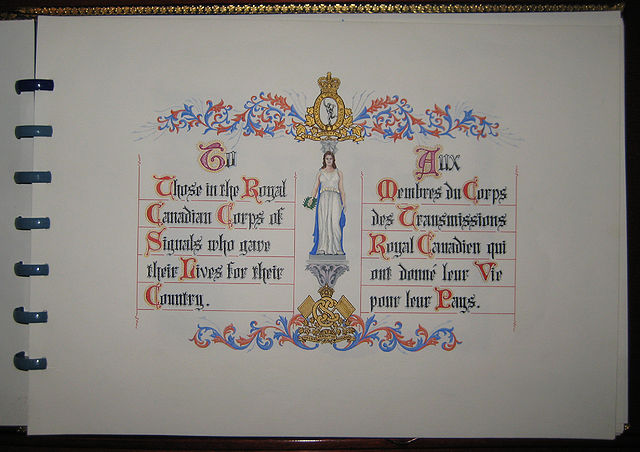 To
Those in the Royal
Canadian Corps of
Signals who gave
their Lives for their
Country.
Aux
Membres du Corps
des Transmissions
Royal Canadien qui
ont donné leur Vie
pour leur Pays.